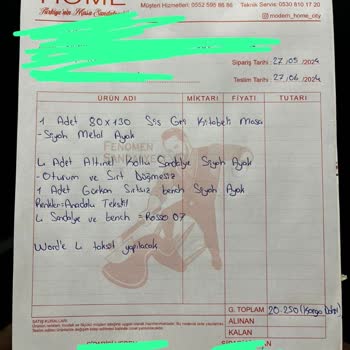 HOME
Türkiye'nin Masa Sandalyesi
Müşteri Hizmetleri: 0552 595 86 86 Teknik Servis: 0530 810 17 20
modern_home_city
Sipariş Tarihi : 27.05 /2024
Teslim Tarihi : 27.06 /2024
ÜRÜN ADI MİKTARI FİYATI TUTARI
1 Adet 80x130 Sis Gri Kitabeti Masa
-Siyah Metal Ayak
FENOMEN
SANDALYE
4 Adet Altınel Kollu Sandalye Siyah Ayak
-Oturum ve Sırt Düğmesiz
1 Adet Gürkan Sırtsız bench Siyah Ayak
Renkler=Anadolu Tekstil
4 Sandalye ve bench = Rosso 07
Word'e 4 taksit yapılacak
G. TOPLAM 20.250 (Kargo Dahil)
ALINAN
KALAN
SATIŞ KURALLARI